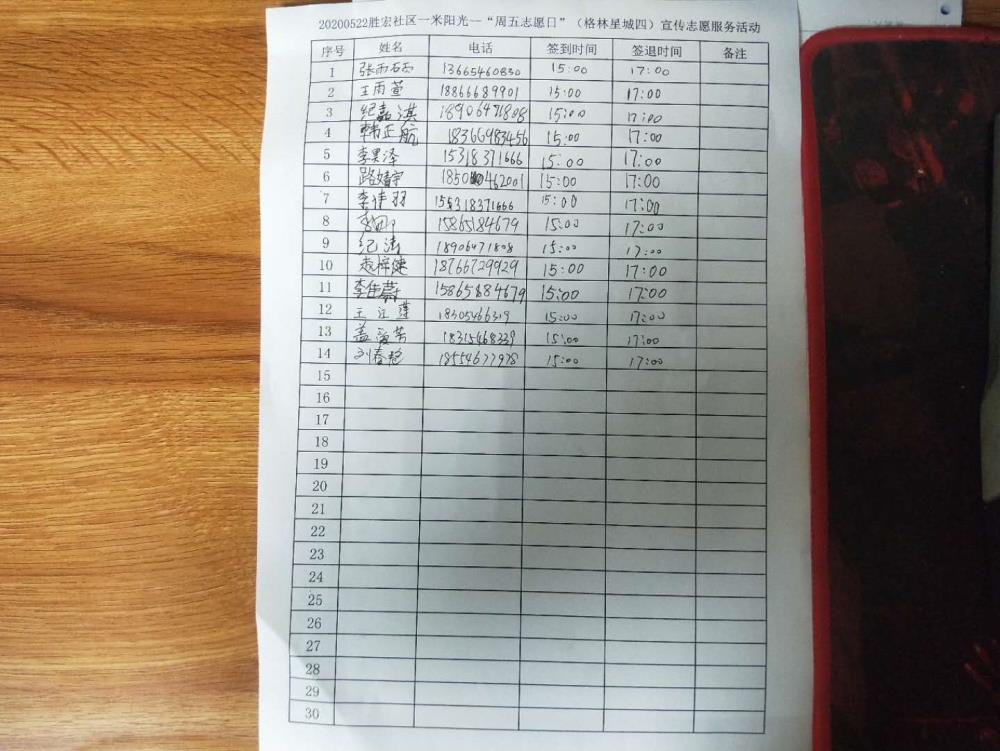 20200522胜宏社区一米阳光--“周五志愿日”（格林星城四）宣传志愿服务活动
序号 姓名 电话 签到时间 签退时间 备注
1 张雨 13665460830 15:00 17:00
2 王雨萱 18866689901 15:00 17:00
3 纪嘉淇 18906471808 15:00 17:00
4 韩正航 18366983456 15:00 17:00
5 李果泽 15318371666 15:00 17:00
6 路婧宇 15:00 17:00
7 李佳羽 155318371666 15:00 17:00
8 15865184679 15:00 17:00
9 纪涛 18906471808 15:00 17:00
10 梓健 18766729929 15:00 17:00
11 李佳蔚 15:00 17:00
12 王江莲 18305466319 15:00 17:00
13 盖爱芳 18315468339 15:00 17:00
14 刘春艳 18554677978 15:00 17:00
15
16
17
18
19
20
21
22
23
24
25
26
27
28
29
30